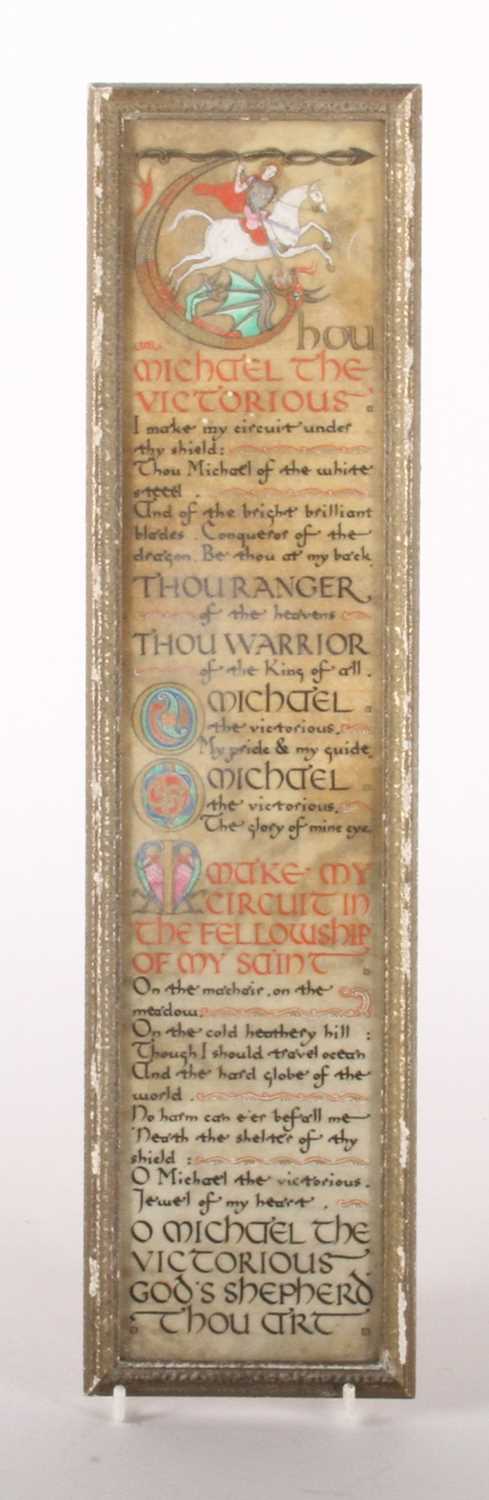 Thou
MICHAEL THE
VICTORIOUS
I make my circuit under
thy shield:
Thou Michael of the white
steed.
And of the bright brilliant
blades. Conqueror of the
dragon. Be thou at my back
THOU RANGER
of the heavens
THOU WARRIOR
of the King of all.
O MICHAEL
the victorious.
My pride & my guide.
O MICHAEL
the victorious.
The glory of mine eye.
I MAKE MY
CIRCUIT IN
THE FELLOWSHIP
OF MY SAINT
On the machair, on the
meadow.
On the cold heathery hill:
Though I should travel ocean
And the hard globe of the
world.
No harm can e'er befall me
'Neath the shelter of thy
shield:
O Michael the victorious.
Jewel of my heart.
O MICHAEL THE
VICTORIOUS
GOD'S SHEPHERD
THOU ART